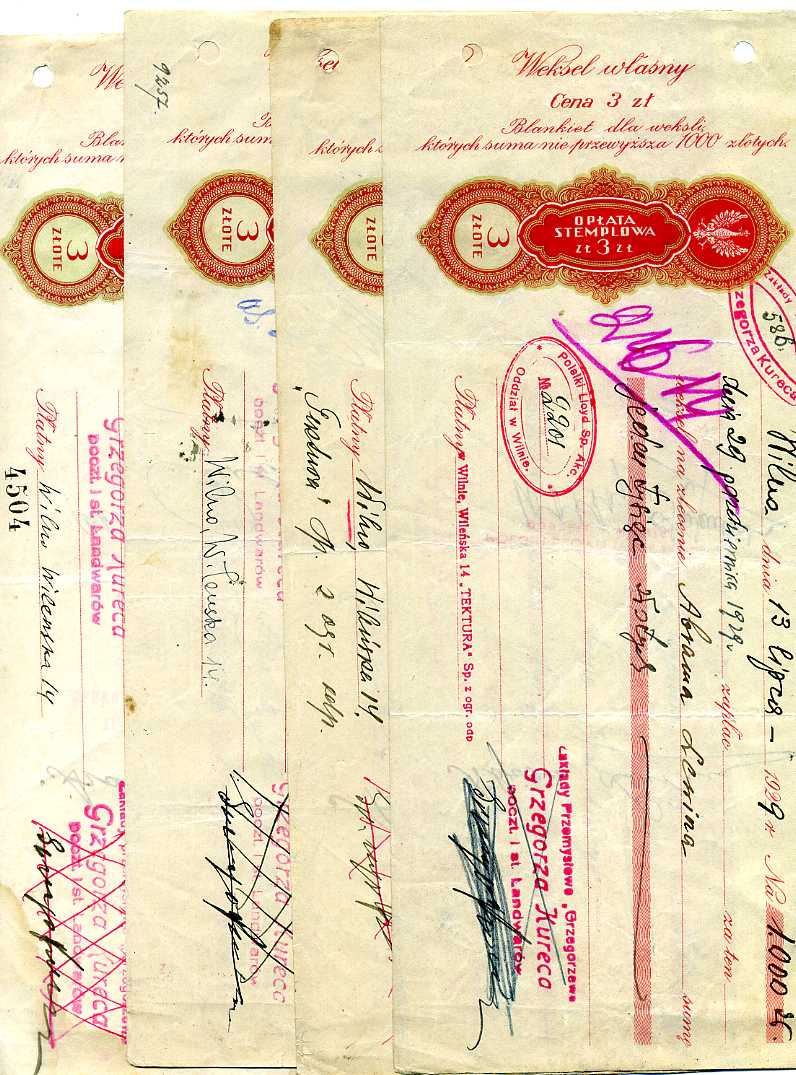 Weksel własny
Cena 3 zł
Blankiet dla weksli,
których suma nie przewyższa 1000 złotych.
3
ZŁOTE
OPŁATA
STEMPLOWA
ZŁ 3 ZŁ
Zakłady
586.
Grzegorza Kureca
Wilno dnia 13 lipca - 1929 r. Na 1.000 zł.
dnia 29 października 1929 r. zapłac za ten
weksel na zlecenie Abrama Lenina sumę
jeden tysiąc złotych
Polski Lloyd Sp. Akc.
№ 2201
Oddział w Wilnie.
Płatny w Wilnie, Wileńska 14 "TEKTURA" Sp. z ogr. odp
Zakłady Przemysłowe „Grzegorzewo
Grzegorza Kureca
poczt. i st. Landwarów
których su
3
ZŁOTE
Płatny Wilno, Wileńska 14.
"Tektura" Sp. z ogr. odp.
9257.
których suma
3
ZŁOTE
Płatny Wilno, Wileńska 14.
poczt. i st. Landwarów
Grzegorza Kureca
poczt. i st. Landwarów
We
Blan
których suma n
3
ZŁOTE
Grzegorza Kureca
poczt. i st. Landwarów
Płatny Wilno Wileńska 14
4504
Grzegorza Kureca
poczt. i st. Landwarów